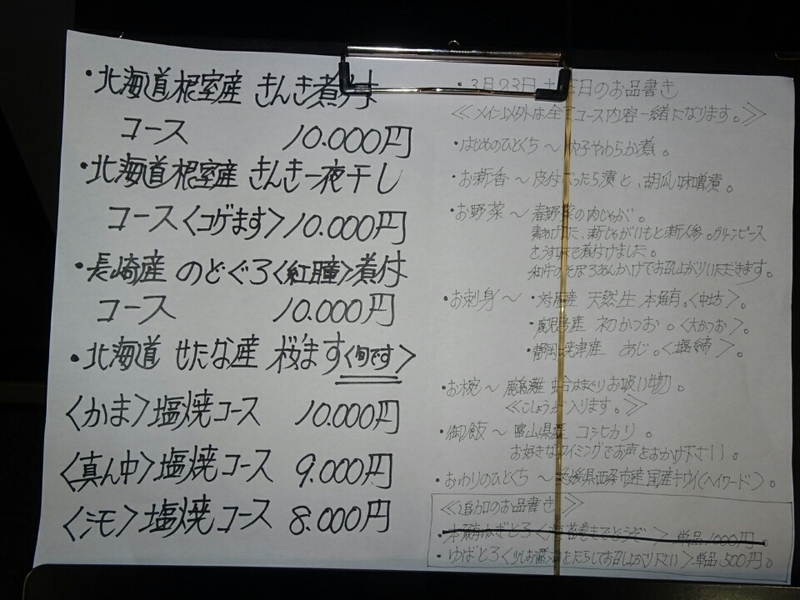 ・北海道根室産 きんき煮付
コース 10.000円
・北海道根室産 きんき一夜干し
コース〈コゲます〉10.000円
・長崎産 のどぐろ〈紅瞳〉煮付
コース 10.000円
・北海道 せたな産 桜ます〈旬です〉
〈かま〉塩焼コース 10.000円
〈真ん中〉塩焼コース 9.000円
〈シモ〉塩焼コース 8.000円
・3月23日 日のお品書き
≪メイン以外は全てコース内容一緒になります。≫
・はじめのひとくち〜 やわらか煮。
・お新香〜 べったら漬と、胡瓜味噌漬。
・お野菜〜 春野菜の肉じゃが。
新じゃがいもと新人参。グリンピース
煮付けました。
あんかけでお召し上がりいただきます。
・お刺身〜 天然生 本鮪。
・鹿児島産 初かつお。
・静岡 焼津産 あじ。
・お椀〜 鹿島灘 はまぐりお吸い物。
≪こしょうが入ります。≫
・御飯〜 富山県産 コシヒカリ。
お好きなタイミングでお声をおかけ下さい。
・おわりのひとくち〜 愛媛県西条市産 国産キウイ〈ヘイワード〉。
≪追加のお品書き≫
・本鮪ねぎとろ 単品 1000円
・ゆばとろ 単品 500円。